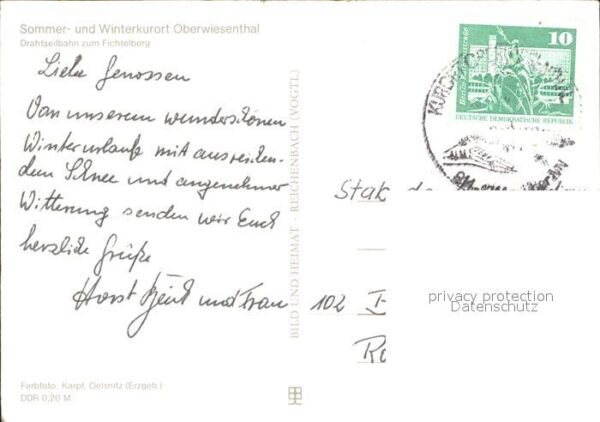 Sommer- und Winterkurort Oberwiesenthal
Drahtseilbahn zum Fichtelberg
Liebe Genossen
Von unserem wunderschönen
Winterurlaub mit ausreichen-
dem Schnee und angenehmer
Witterung senden wir Euch
herzliche Grüße
Horst und Frau
BILD UND HEIMAT · REICHENBACH (VOGTL)
10
DEUTSCHE DEMOKRATISCHE REPUBLIK
102
privacy protection
Datenschutz
Farbfoto: Karpf, Oelsnitz (Erzgeb.)
DDR 0,20 M